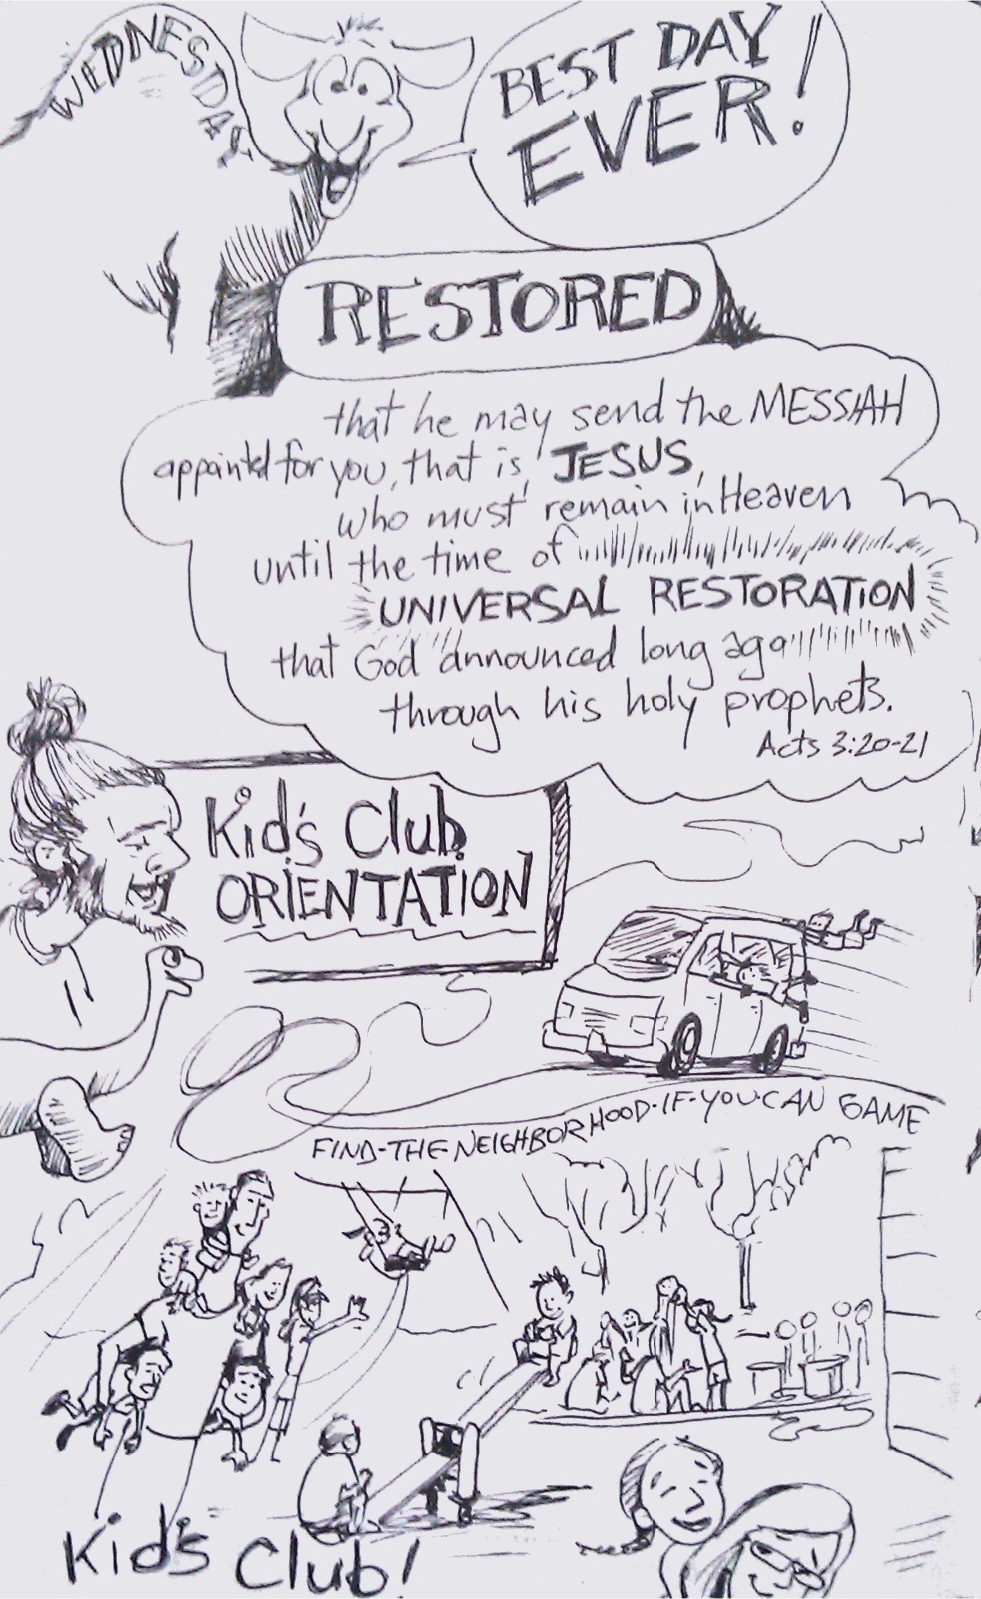 WEDNESDAY
BEST DAY
EVER!
RESTORED
that he may send the MESSIAH
appointd for you, that is, JESUS,
who must remain in Heaven
until the time of
UNIVERSAL RESTORATION
that God announced long ago
through his holy prophets.
Acts 3:20-21
Kid's Club
ORIENTATION
FIND-THE-NEIGHBORHOOD-IF-YOU-CAN GAME
Kid's Club!